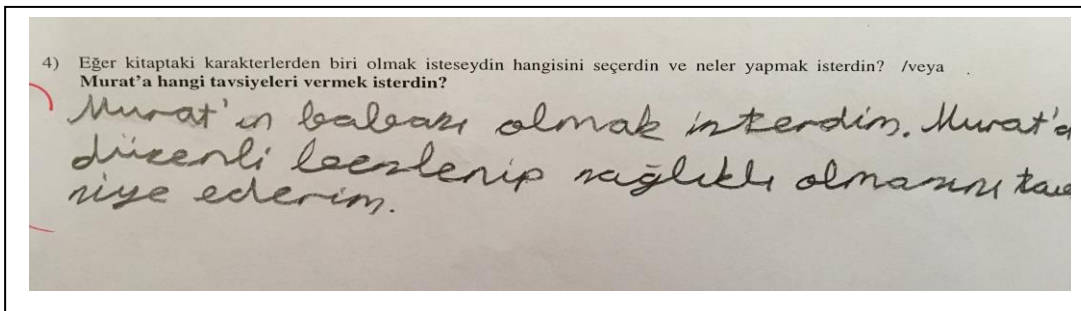 4) Eğer kitaptaki karakterlerden biri olmak isteseydin hangisini seçerdin ve neler yapmak isterdin? /veya
Murat'a hangi tavsiyeleri vermek isterdin?
Murat'ın babası olmak isterdim. Murat'a
düzenli beslenip sağlıklı olmasını tav
siye ederim.